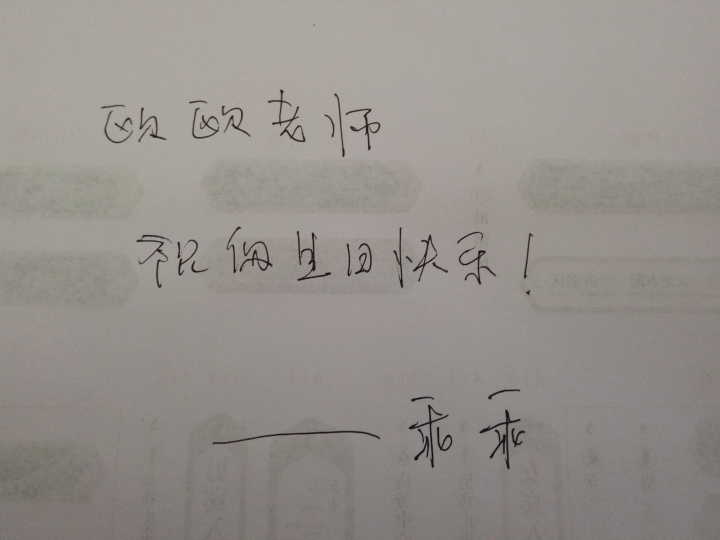 欧欧老师
祝您生日快乐!
——乖乖